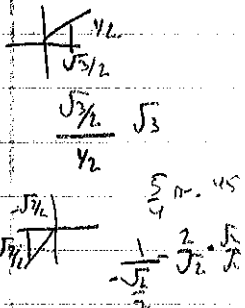 1/2
√3/2
√3/2 / 1/2 √3
-√2/2
√2/2
1 / -√2/2 - 2/√2 · √2/√2